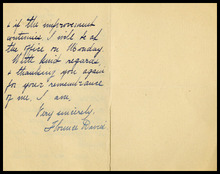 & if the improvement
continues, I will be at
the office on Monday.
With kind regards,
& thanking you again
for your remembrance
of me, I am,
Very sincerely,
Florence